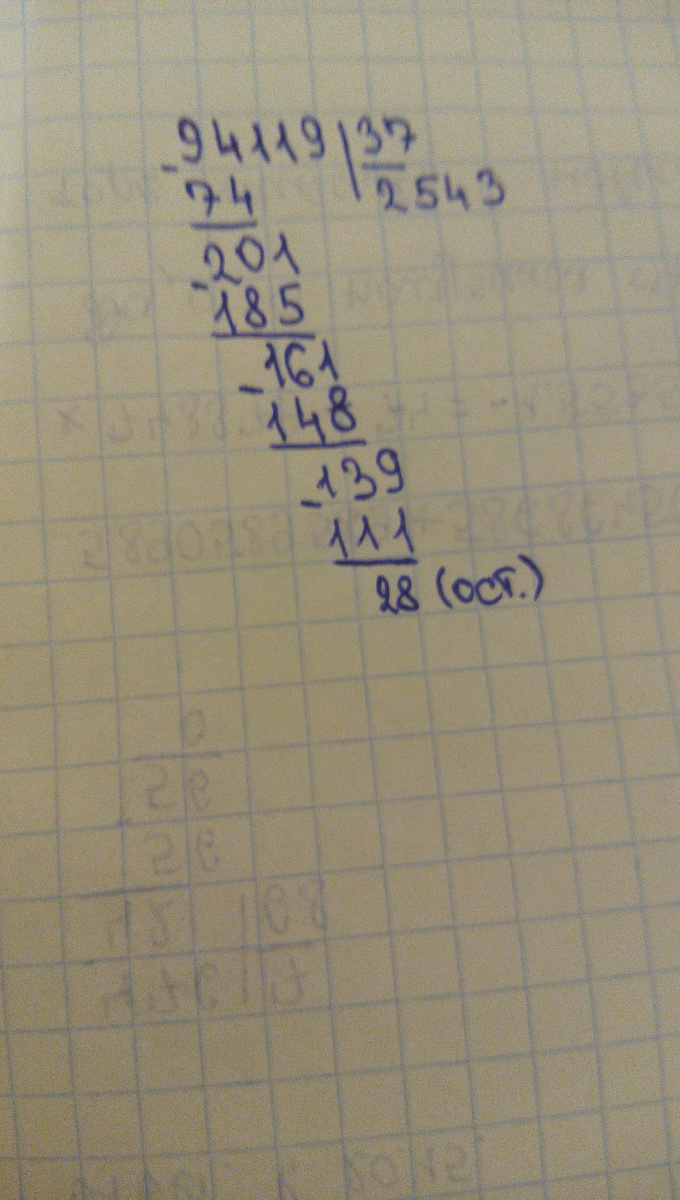 94119 | 37
- 74 2543
201
- 185
161
- 148
139
- 111
28 (ост.)